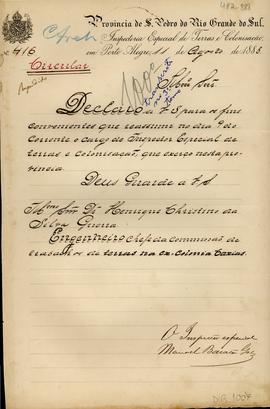 482.983
Provincia de S. Pedro do Rio Grande do Sul.
Inspectoria Especial de Terras e Colonisação,
em Porto Alegre, 11 de Agosto de 1885.
Nº 416
Circular
Illmo Snr.
Declaro a V. S. para os fins
convenientes que reassumi no dia 9 do
corrente o cargo de Inspector Especial de
terras e colonisação, que exerço nesta pro-
vincia.
Deus Guarde a V. S.
Illmo Snr Dr Henrique Christino da
Silva Guerra
Engenheiro Chefe da commissão de
trabalhos de terras na ex-colonia Caxias.
O Inspector especial
Manoel